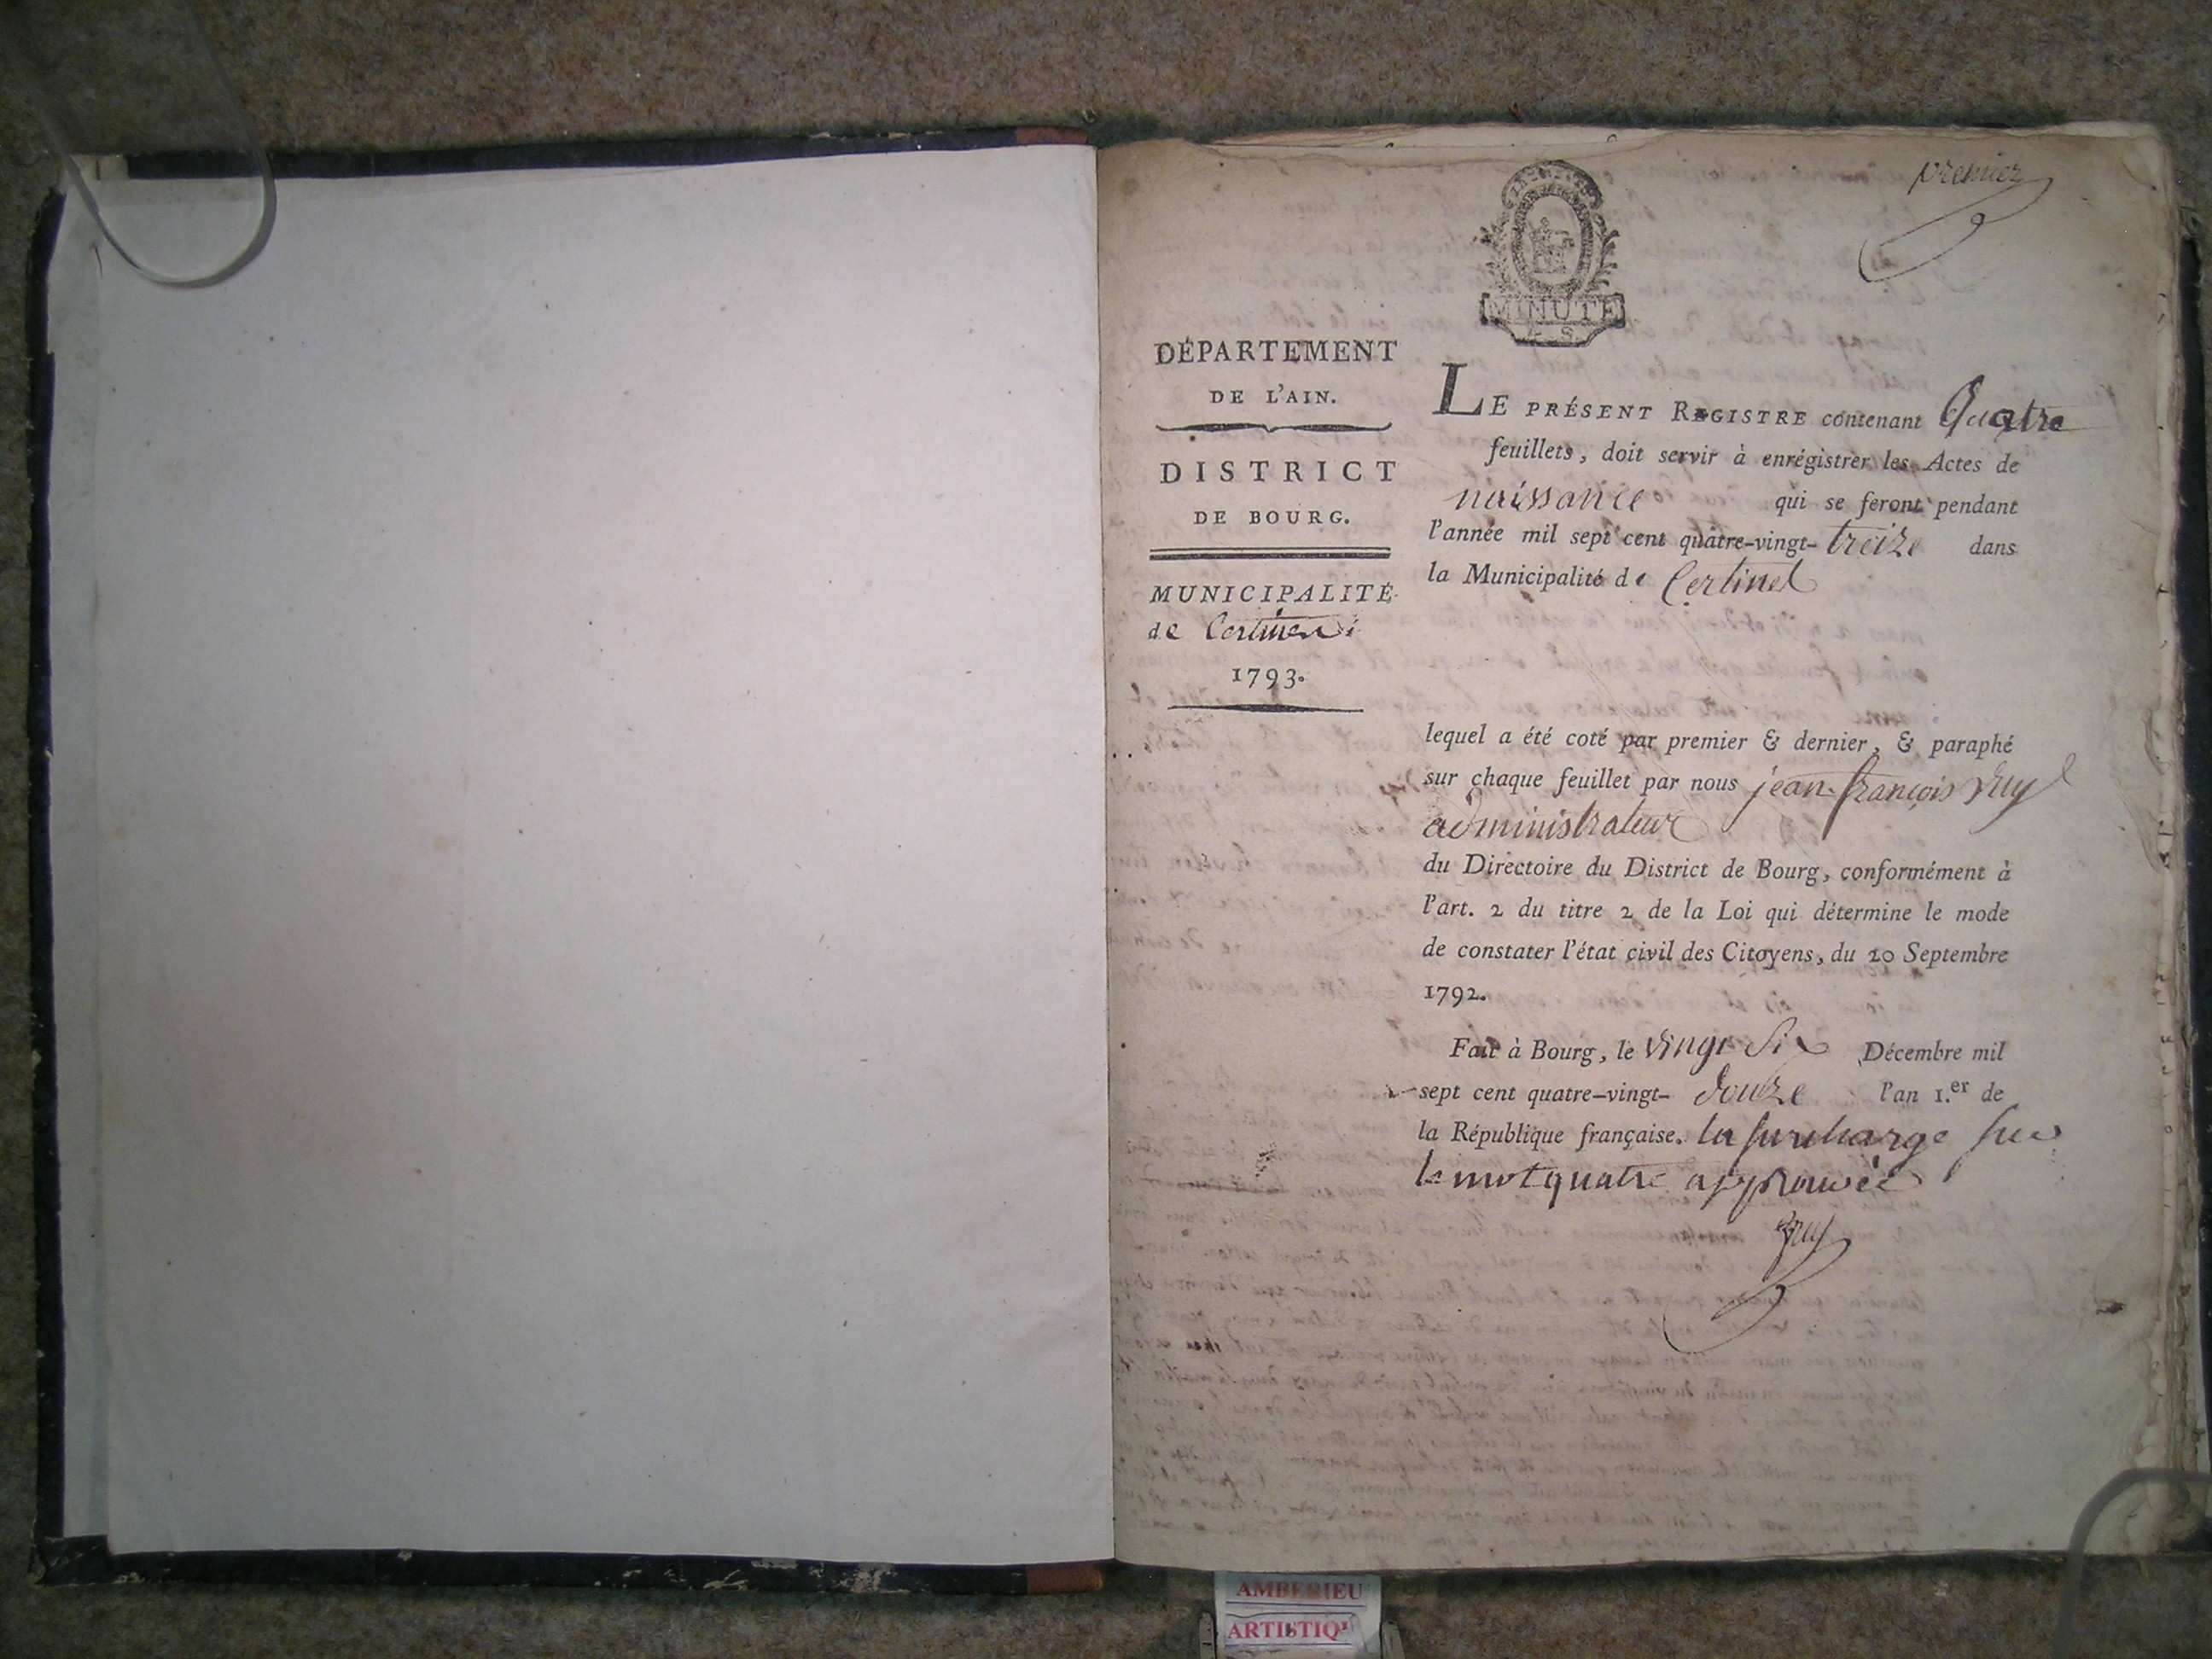 premier
MINUTE
4. S.
DÉPARTEMENT
DE L'AIN.
DISTRICT
DE BOURG.
MUNICIPALITÉ
de
1793.
LE PRÉSENT REGISTRE contenant Quatre
feuillets, doit servir à enrégistrer les Actes de
naissance qui se feront pendant
l'année mil sept cent quatre-vingt-treize dans
la Municipalité de Certines
lequel a été coté par premier & dernier, & paraphé
sur chaque feuillet par nous jean-françois
administrateur
du Directoire du District de Bourg, conformément à
l'art. 2 du titre 2 de la Loi qui détermine le mode
de constater l'état civil des Citoyens, du 20 Septembre
1792.
Fait à Bourg, le vingt six Décembre mil
sept cent quatre-vingt-douze l'an 1.er de
la République française. la surcharge sur
le mot quatre approuvée
AMBERIEU
ARTISTIQ